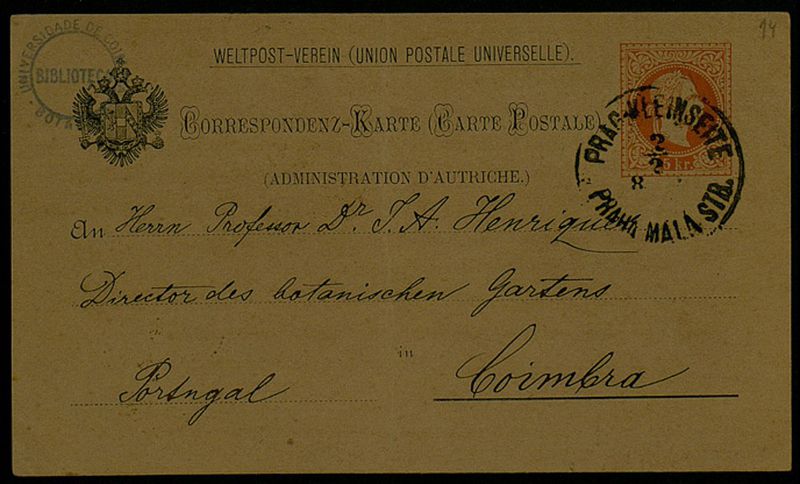 UNIVERSIDADE DE COI
BIBLIOTEC
BOTA
94
WELTPOST-VEREIN (UNION POSTALE UNIVERSELLE).
CORRESPONDENZ-KARTE (CARTE POSTALE)
(ADMINISTRATION D'AUTRICHE.)
5 kr.
PRAG-KLEINSEITE
2/2
8
PRAHA MALÁ STR.
An Herrn Professor Dr J. A. Henriques
Director des botanischen Gartens
in
Portugal Coimbra